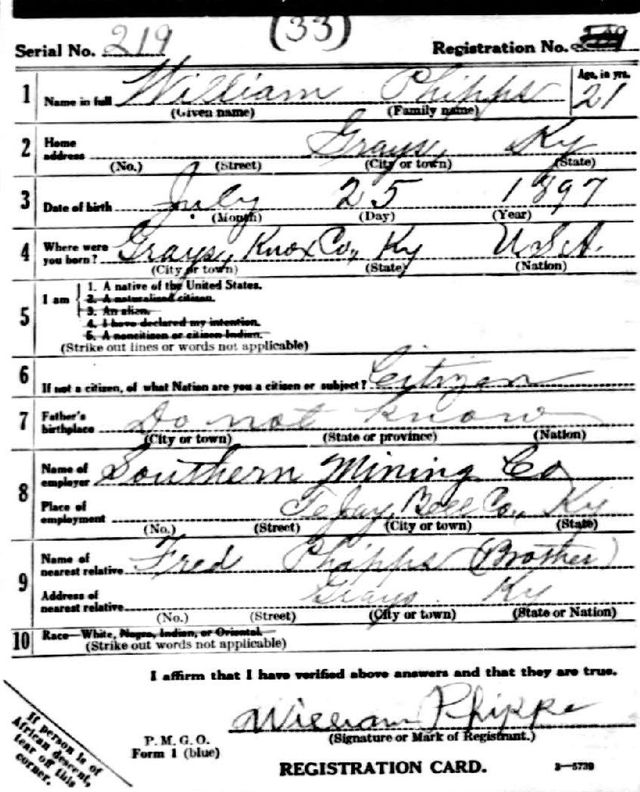 (33)
Serial No. 219 Registration No. 219
1 Name in full William Phipps Age, in yrs. 21
(Given name) (Family name)
2 Home address Grays, Ky
(No.) (Street) (City or town) (State)
3 Date of birth July 25 1897
(Month) (Day) (Year)
4 Where were you born? Grays, Knox Co., Ky U.S.A.
(City or town) (State) (Nation)
5 I am
1. A native of the United States.
2. A naturalized citizen.
3. An alien.
4. I have declared my intention.
5. A noncitizen or citizen Indian.
(Strike out lines or words not applicable)
6 If not a citizen, of what Nation are you a citizen or subject? Citizen
7 Father's birthplace Do not know
(City or town) (State or province) (Nation)
8 Name of employer Southern Mining Co
Place of employment Tejay, Bell Co., Ky
(No.) (Street) (City or town) (State)
9 Name of nearest relative Fred Phipps (Brother)
Address of nearest relative Grays Ky
(No.) (Street) (City or town) (State or Nation)
10 Race—White, Negro, Indian, or Oriental.
(Strike out words not applicable)
I affirm that I have verified above answers and that they are true.
William Phipps
(Signature or Mark of Registrant.)
P. M. G. O.
Form 1 (blue)
REGISTRATION CARD. 3—5739
If person is of
African descent,
tear off this
corner.